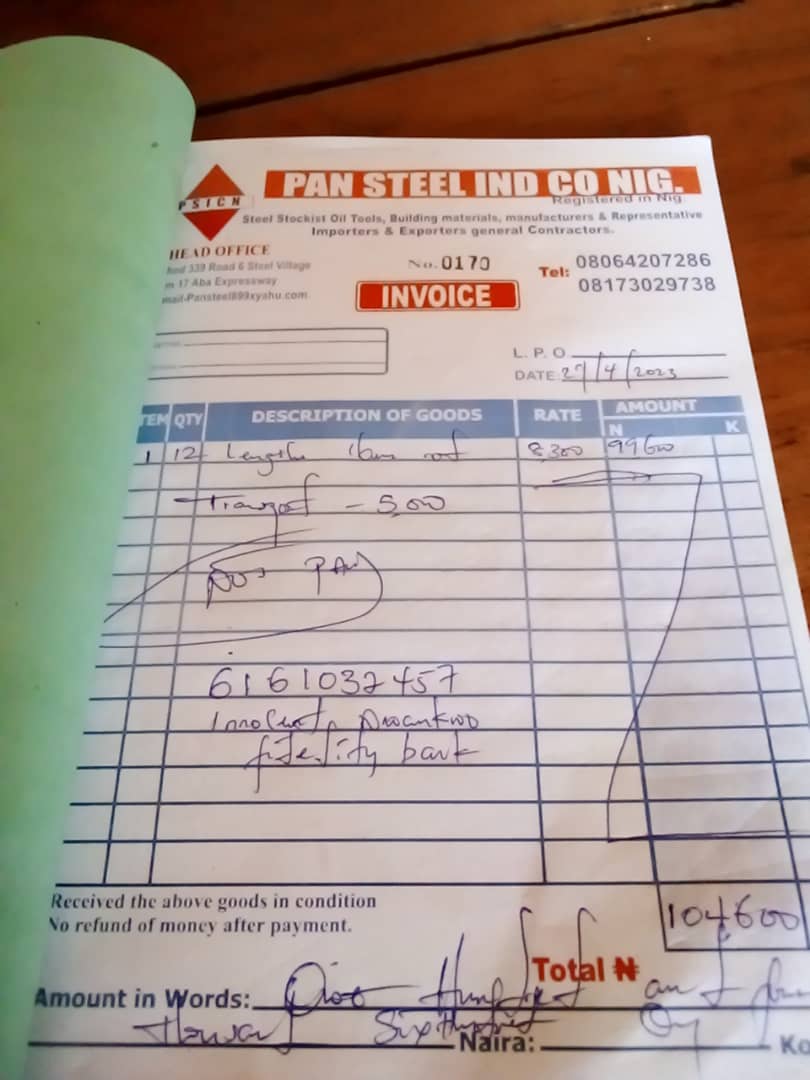 PSICN
PAN STEEL IND CO NIG.
Registered in Nig.
Steel Stockist Oil Tools, Building materials, manufacturers & Representative
Importers & Exporters general Contractors.
HEAD OFFICE
339 Road 6 Steel Village
17 Aba Expressway
No. 0170
INVOICE
Tel: 08064207286
08173029738
L. P. O.
DATE 27/4/2023
TEM QTY DESCRIPTION OF GOODS RATE AMOUNT
N K
1 12 Lengths rod 8,300 99600
Transport - 5,00
Not PAID
6161032457
Innocent Nwankwo
fidelity bank
Received the above goods in condition
No refund of money after payment.
104600
Total ₦
Amount in Words: One Hundred and four
Thousand Six Hundred Only
Naira: Ko